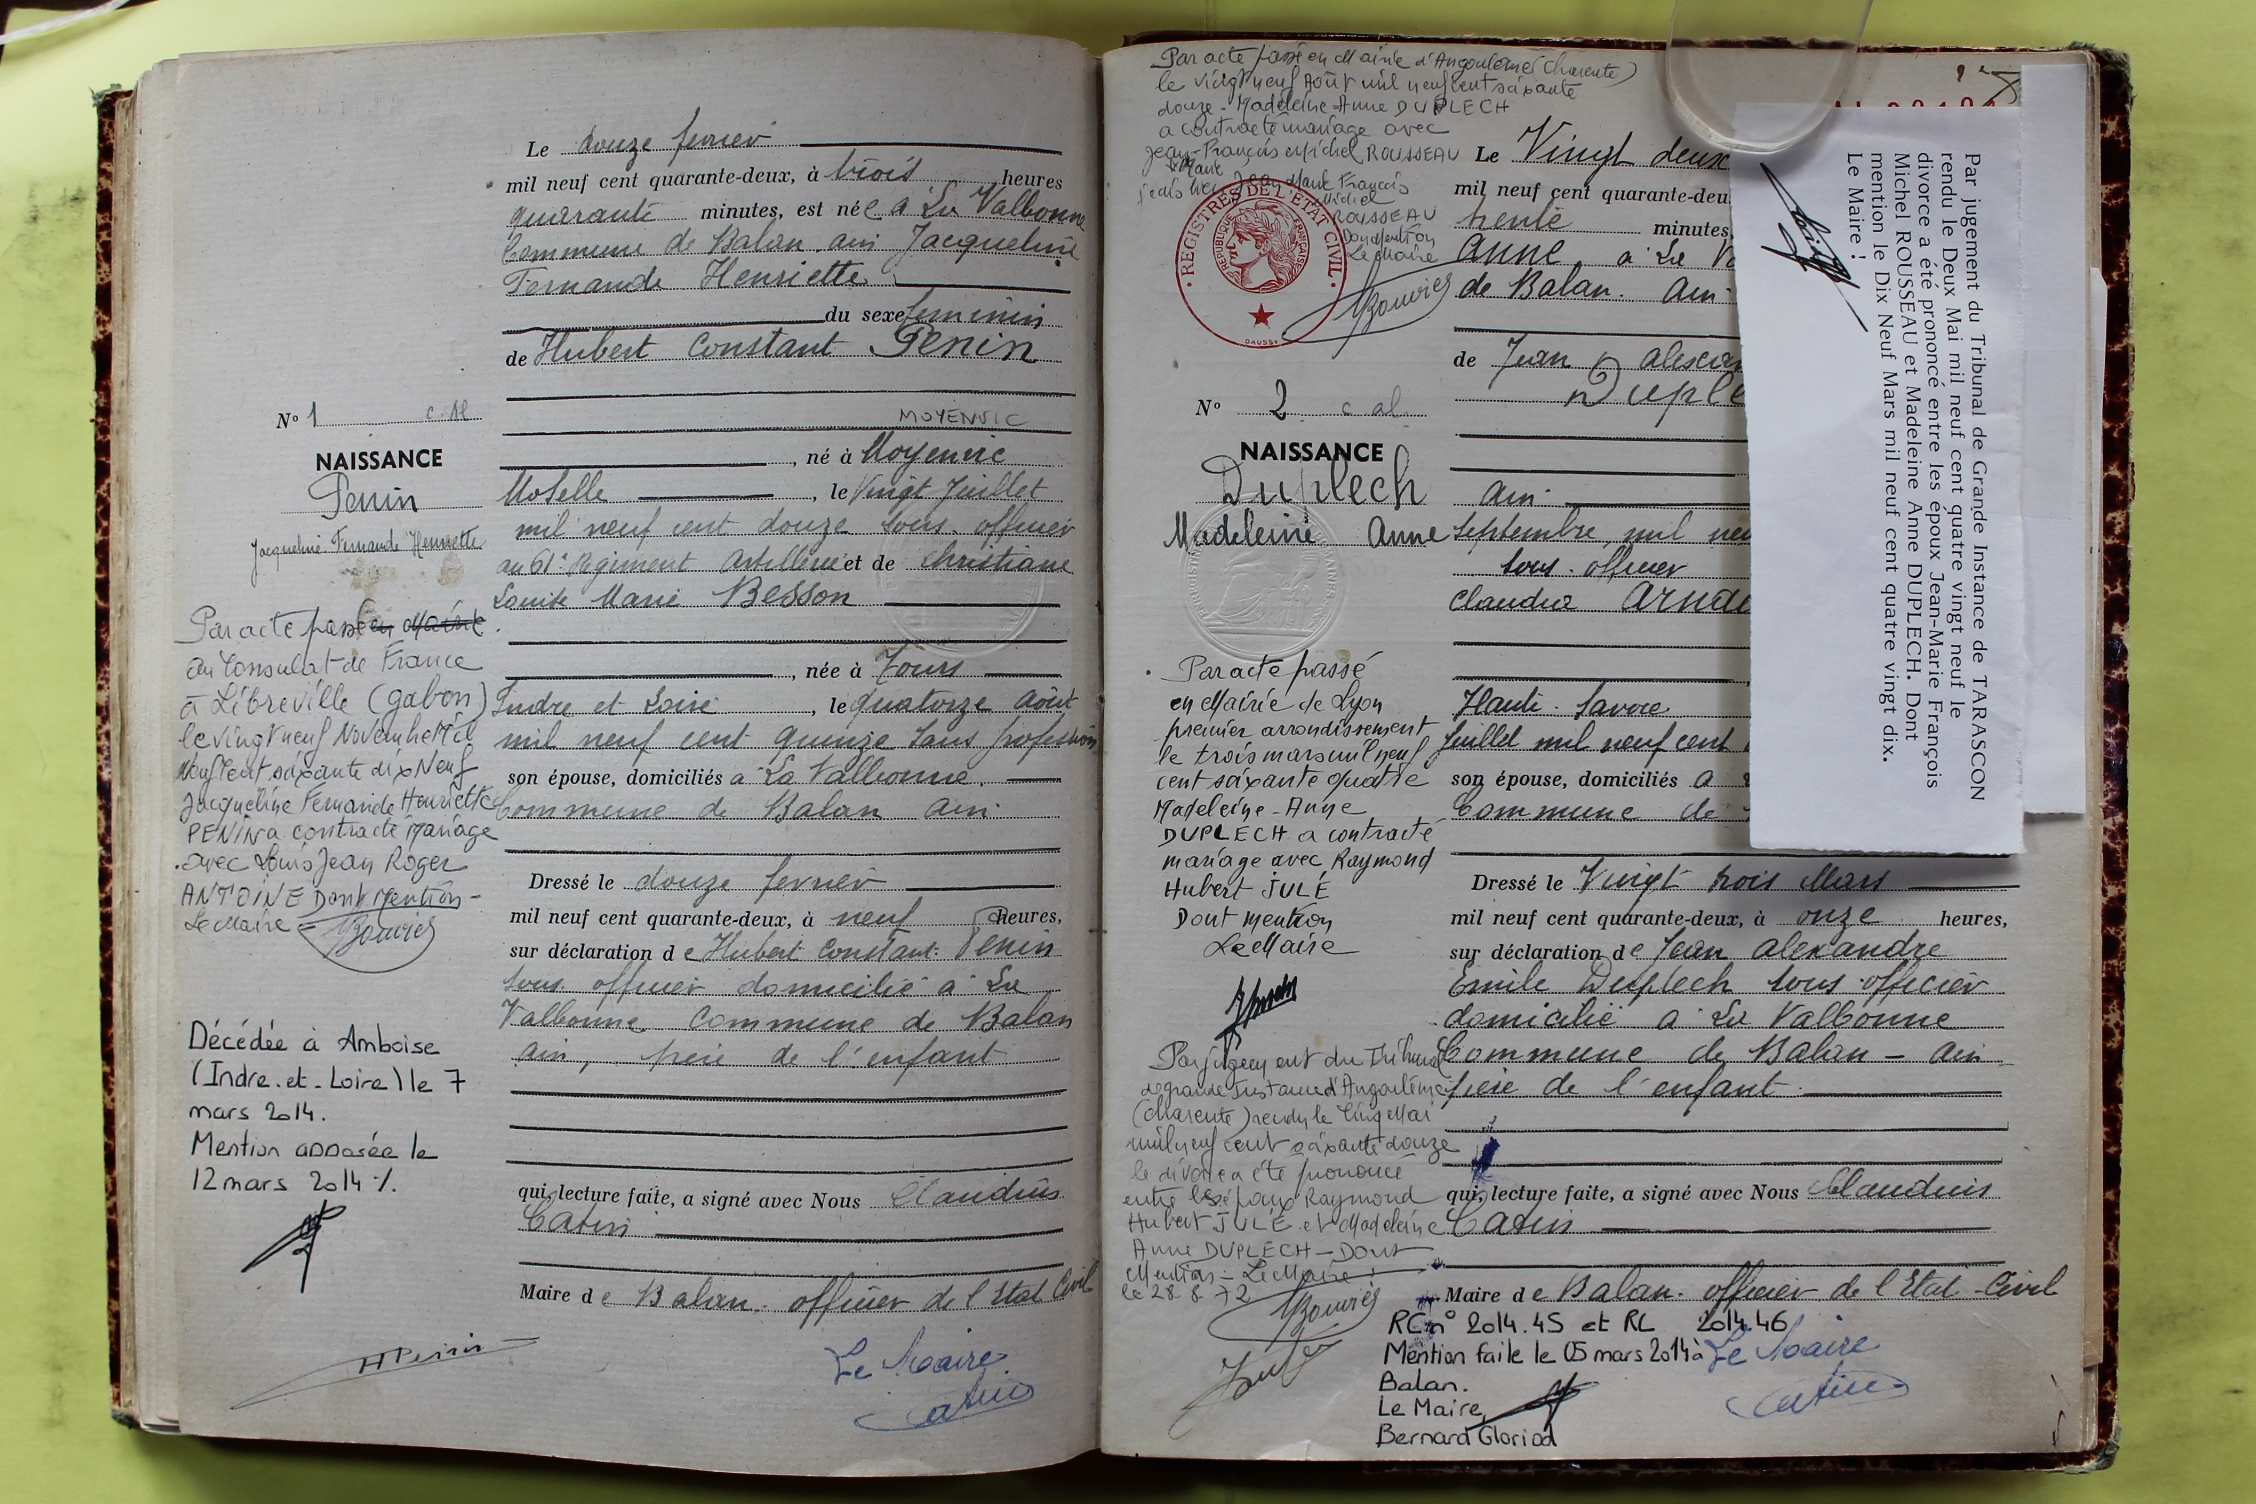 Le douze fevrier
mil neuf cent quarante-deux, à trois heures
quarante minutes, est née à La Valbonne
Commune de Balan ain Jacqueline
Fernande Henriette
du sexe feminin
de Hubert Constant Penin
MOYENVIC
, né à Moyenvic
Moselle , le Vingt Juillet
mil neuf cent douze sous-officier
au 61e Regiment Artillerie et de Christiane
Louise Marie Besson
, née à Tours
Indre et Loire , le quatorze Août
mil neuf cent quinze sans profession
son épouse, domiciliés à La Valbonne
Commune de Balan ain.
Dressé le douze fevrier
mil neuf cent quarante-deux, à neuf heures,
sur déclaration de Hubert Constant Penin
sous officier domicilié à La
Valbonne Commune de Balan
ain, père de l'enfant
qui, lecture faite, a signé avec Nous Claudius
Catin
Maire de Balan. officier de l'Etat Civil
HPenin
Le Maire
Catin
No 1
NAISSANCE
Penin
Jacqueline Fernande Henriette
Par acte passé en Mairie
au Consulat de France
à Libreville (gabon)
le vingt neuf Novembre Mil
Neuf Cent soixante dix Neuf
Jacqueline Fernande Henriette
PENIN a contracté Mariage
avec Louis Jean Roger
ANTOINE Dont Mention -
Le Maire
Bouvier
Décédée à Amboise
(Indre.et.Loire) le 7
mars 2014.
Mention apposée le
12 mars 2014 ./.
Par acte passé en Mairie d'Angoulême (Charente)
le vingt neuf Août mil neuf cent soixante
douze - Madeleine-Anne DUPLECH
a contracté mariage avec
Jean-François Michel ROUSSEAU
François
Michel
ROUSSEAU
Dont Mention
Le Maire
Bouvier
REGISTRES DE L'ÉTAT CIVIL
REPUBLIQUE FRANÇAISE
No 2
NAISSANCE
Duplech
Madeleine Anne
Par acte passé
en Mairie de Lyon
premier arrondissement
le trois mars mil neuf
cent soixante quatre
Madeleine-Anne
DUPLECH a contracté
mariage avec Raymond
Hubert JULÉ
Dont mention
Le Maire
Par jugement du Tribunal
de grande Instance d'Angoulême
(Charente) rendu le Cinq Mai
mil neuf cent soixante douze
le divorce a été prononcé
entre les époux Raymond
Hubert JULÉ et Madeleine
Anne DUPLECH - Dont
Mention - Le Maire
le 28 8 72
Bouvier
Le Vingt deux
mil neuf cent quarante-deu
trente minutes,
Anne à La Va
de Balan. Ain
de Jean alexan
Duple
Ain.
Septembre, mil neu
sous-officier
Claudia Arnau
Haute-Savoie
Juillet mil neuf cent
son épouse, domiciliés à
Commune de
Dressé le Vingt trois Mars
mil neuf cent quarante-deux, à onze heures,
sur déclaration de Jean Alexandre
Emile Duplech sous-officier
domicilié à La Valbonne
Commune de Balan - Ain
père de l'enfant
qui, lecture faite, a signé avec Nous Claudius
Catin
Maire de Balan. officier de l'Etat-Civil
RC n° 2014.45 et RL 2014.46
Mention faite le 05 mars 2014 à
Balan.
Le Maire,
Bernard Gloriod
Le Maire
Catin
Par jugement du Tribunal de Grande Instance de TARASCON
rendu le Deux Mai mil neuf cent quatre vingt neuf le
divorce a été prononcé entre les époux Jean-Marie François
Michel ROUSSEAU et Madeleine Anne DUPLECH. Dont
mention le Dix Neuf Mars mil neuf cent quatre vingt dix.
Le Maire !